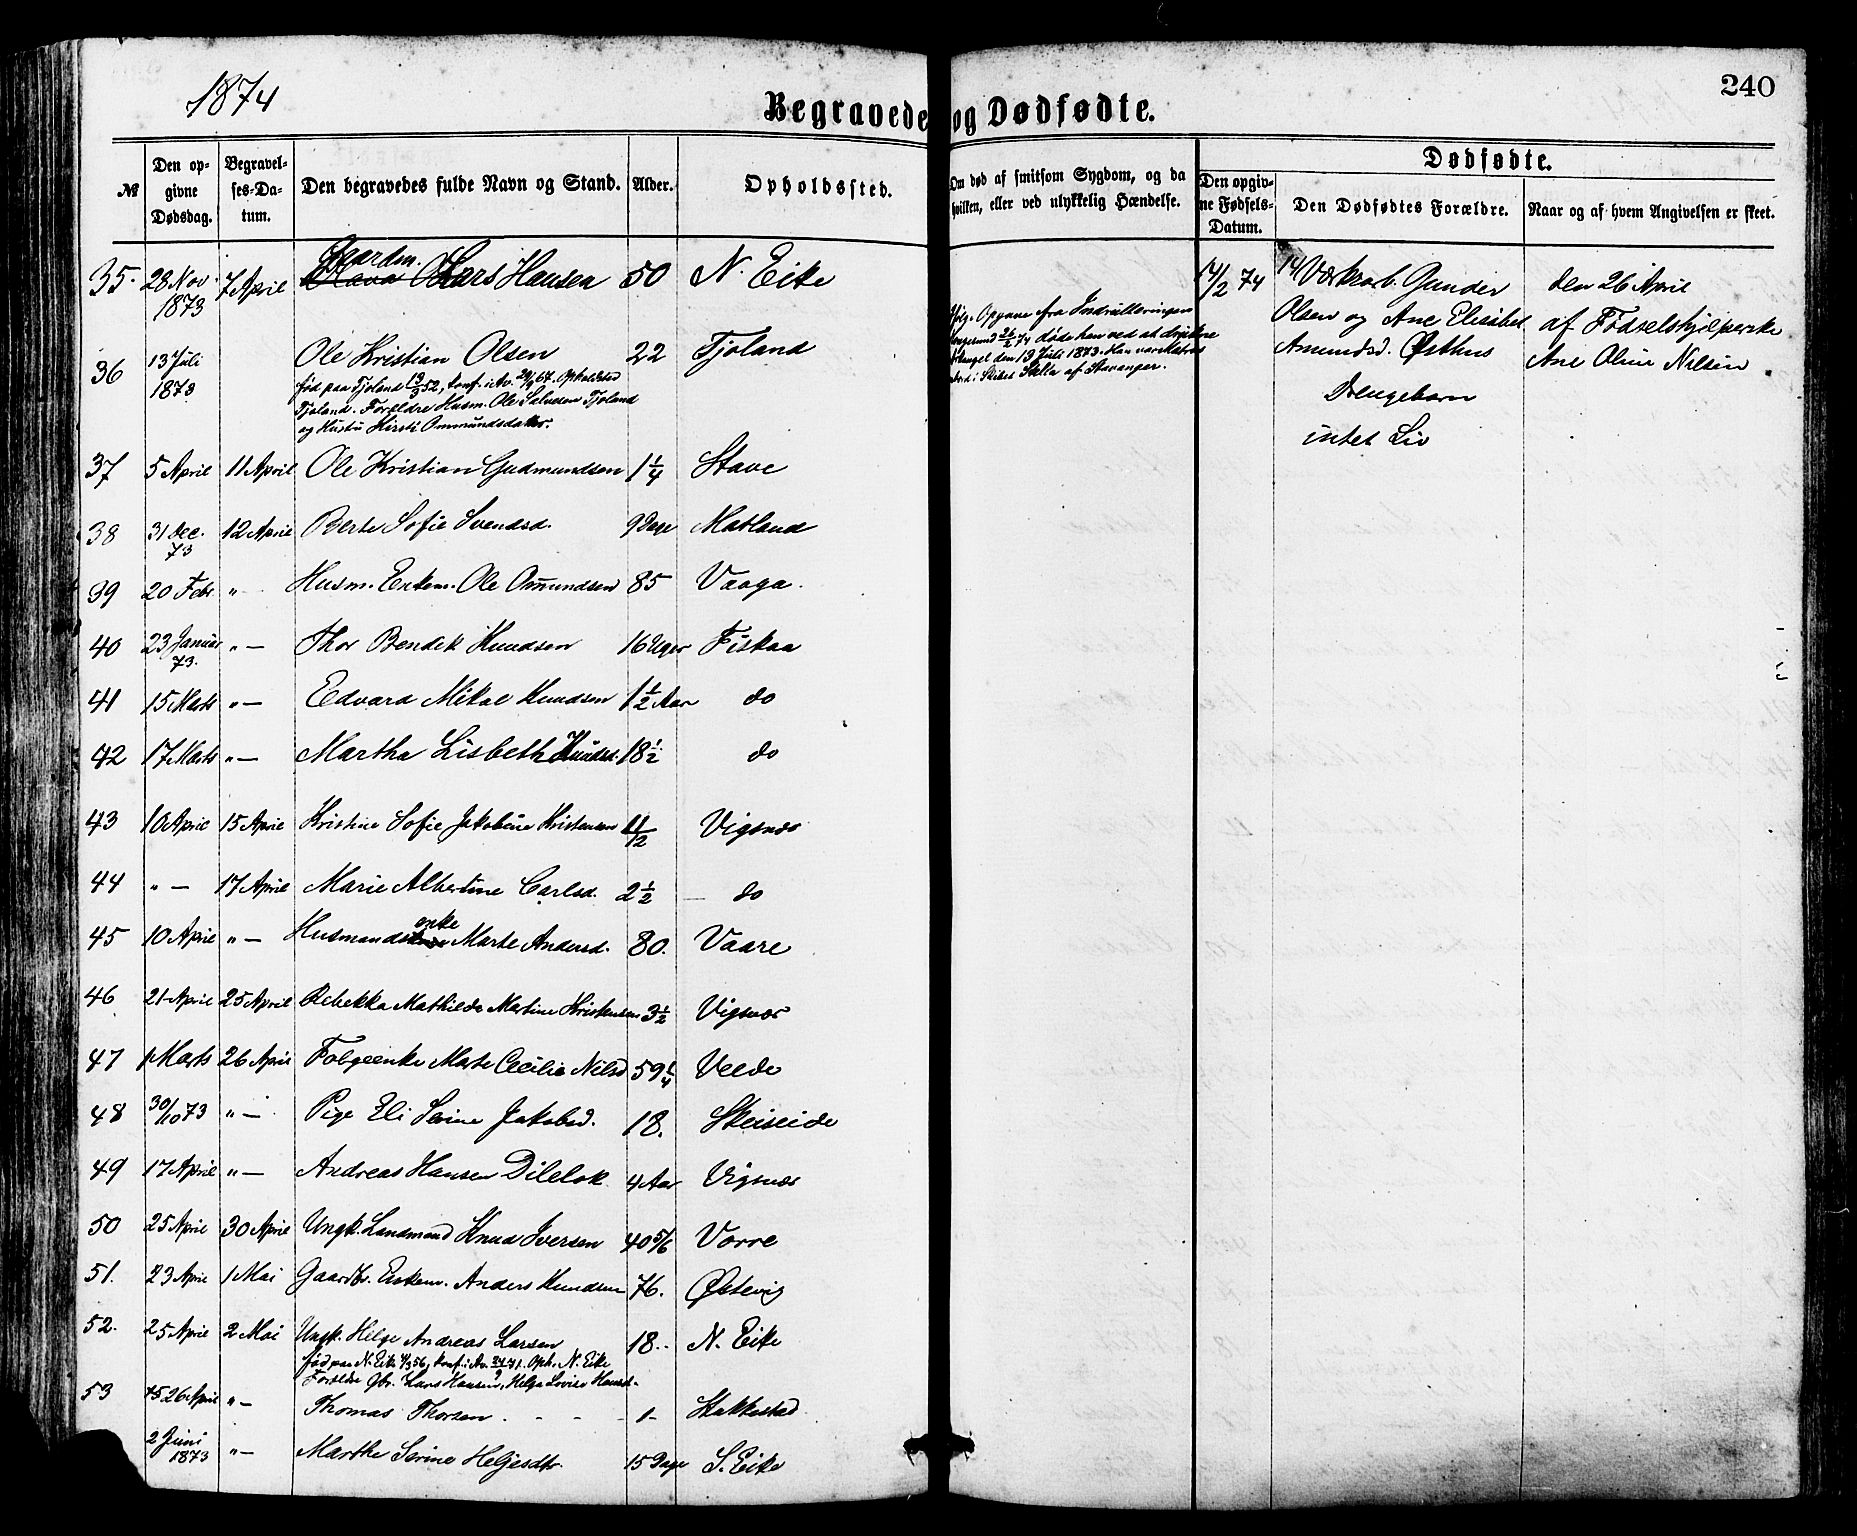 1874
240
Begravede og Dødfødte.
№ Den opgivne Dødsdag. Begravelses-Datum. Den begravedes fulde Navn og Stand. Alder. Opholdssted. Om død af smitsom Sygdom, og da hvilken, eller ved ulykkelig Hændelse. Den opgivne Fødsels-Datum. Dødfødte. Den Dødfødtes Forældre. Naar og af hvem Angivelsen er skeet.
35. 28 Nov. 1873 7 April Gaardm. Lars Hansen 50 N. Eike
14/2 74 Værkarb. Gunder
Olsen og Ane Elisabet
Amundsd. Østhus
Drengebarn
intet Liv
den 26 April
af Fødselshjelperske
Ane Oline Nilsen
36 13 Juli 1873 Ole Kristian Olsen 22 Tjoland
født paa Tjoland 19/3 52, konf. i Av. 29/9 67. Opholdsted
Tjoland. Forældre Husm. Ole Salvesen Tjoland
og Hustru Kirsti Ommundsdatter.
Ifølge Opgave fra Indrulleringen
26/2 74 døde han ved at drukne
den 13 Juli 1873. Han var Matros
ombord i Skibet Stella af Stavanger.
37 5 April 11 April Ole Kristian Gudmundsen 1 1/4 Stave
38 31 Dec. 73 12 April Berte Sofie Svendsd. 9 Dage Matland
39 20 Febr " Husm. Enkem. Ole Omundsen 85 Vaaga.
40 23 Januar 73. "— Thor Bendik Knudsen 16 Uger Fiskaa
41 15 Marts "— Edvard Mikal Knudsen 1 1/2 Aar do
42 17 Marts "— Martha Lisbeth Knudsd. 18 1/2 do
43 10 April 15 April Kristine Sofie Jakobine Kristensen 1 1/2 Vigsnæs
44 "— 17 April Marie Albertine Carlsd. 2 1/2 — do
45 10 April "— Husmandsenke Marte Andersd. 80. Vaare
46 21 April 25 April Rebekka Mathilde Martine Kristensen 3 1/2 Vigsnæs
47 1 Marts 26 April Folgeenke Marte Cecilie Nilsd 59 1/4 Velde
48 30/10 73 "— Pige Eli Serine Jakobsd. 18. Skeiseide
49 17 April "— Andreas Hansen 4 Aar Vigsnæs
50 25 April 30 April Ungk. Landmand Knud Iversen 40 5/6 Vorre
51. 23 April 1 Mai Gaardbr. Enkem. Anders Knudsen 76. Østevig
52. 25 April 2 Mai Ungk. Helge Andreas Larsen 18.. N. Eike
født paa N. Eike 4/3 56, konf. i Av. 24/9 71. Oph. N. Eike
Forældre Gbr. Lars Hansen, Helga Lovise Hansd.
53 26 April "— Thomas Thorsen 1 Stakkestad
2 Juni 1873 "— Marthe Serine Helgesdtr. 15 Dage S. Eike